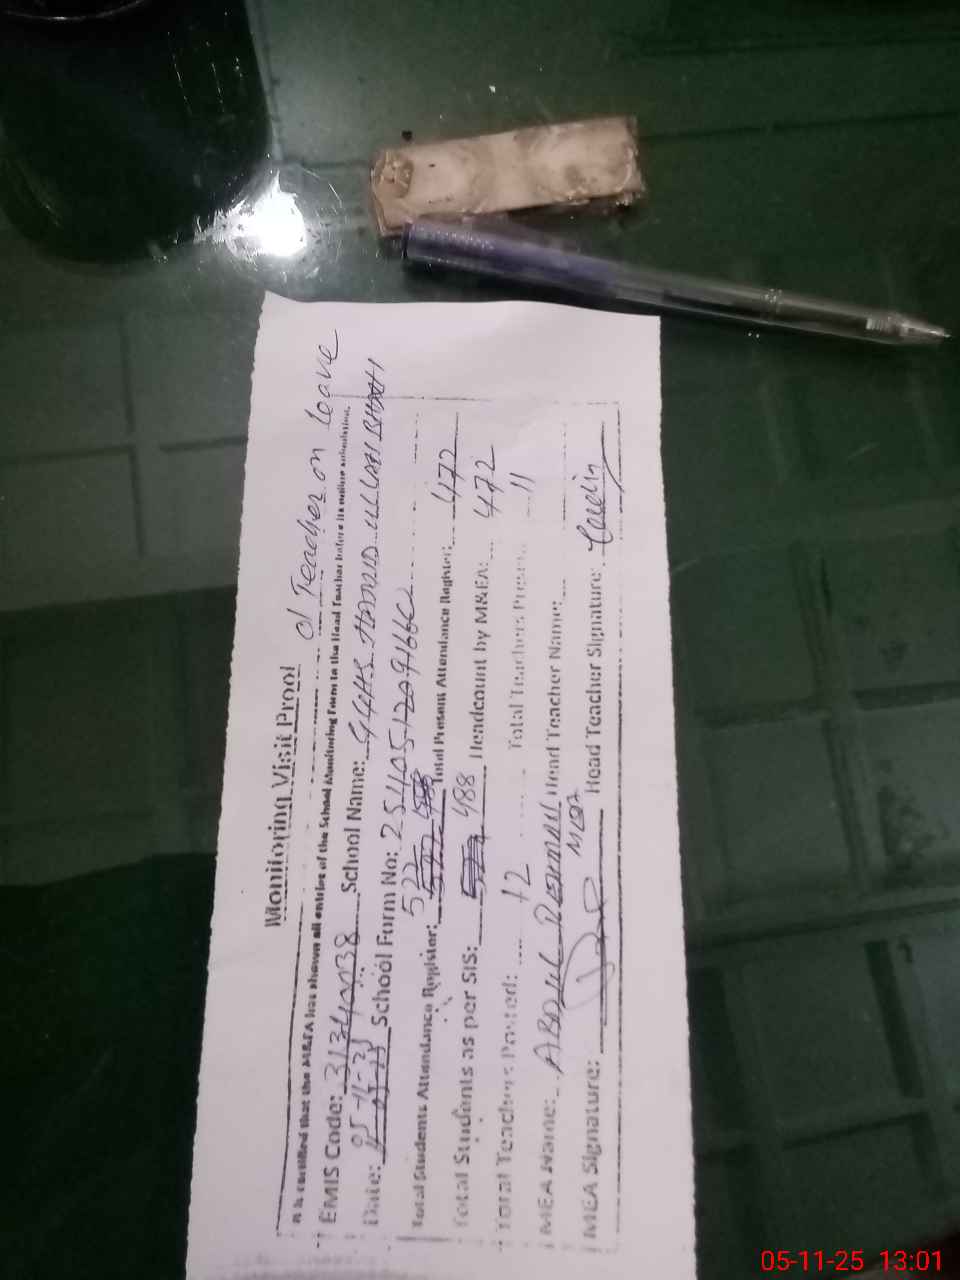 01 Teacher on leave
Monitoring Visit Proof
It is certified that the M&EA has shown all entries of the School Monitoring Form to the Head Teacher before its online submission.
EMIS Code: 31340038 School Name: GGHS
Date: 05-11-25 School Form No:
Total Students Attendance Register: 522 Total Present Attendance Register: 472
Total Students as per SIS: 488 Headcount by M&EA: 472
Total Teachers Posted: 12 Total Teachers Present 11
MEA Name: ABDUL REHMAN Head Teacher Name:
MEA
MEA Signature: Head Teacher Signature:
05-11-25 13:01